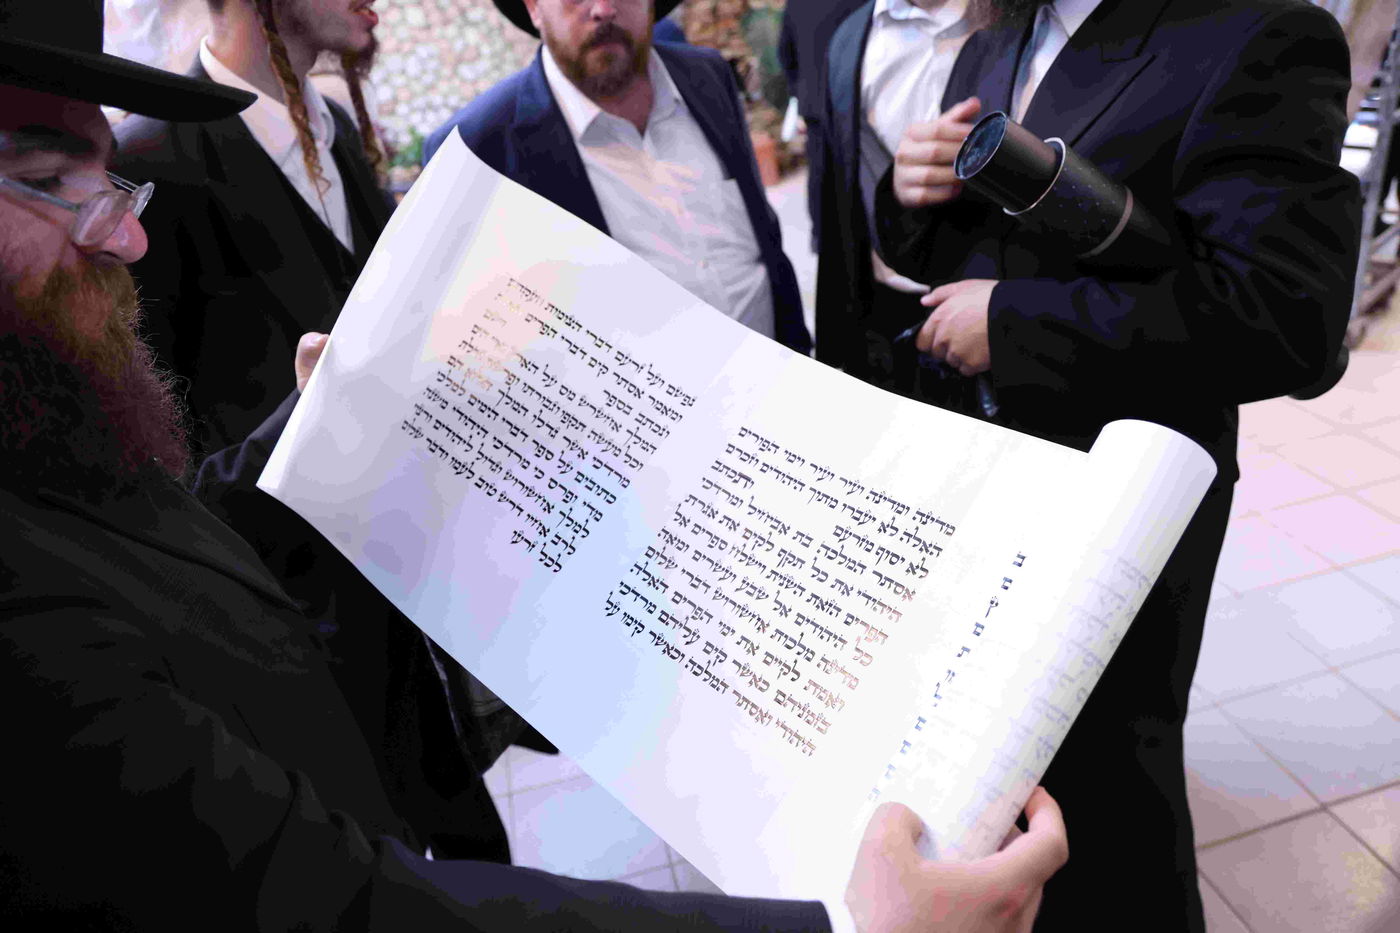 מדינה ומדינה ועיר ועיר וימי הפורים
האלה לא יעברו מתוך היהודים וזכרם
לא יסוף מזרעם ותכתב
אסתר המלכה בת אביחיל ומרדכי
היהודי את כל תקף לקים את אגרת
הפרים הזאת השנית וישלח ספרים אל
כל היהודים אל שבע ועשרים ומאה
מדינה מלכות אחשורוש דברי שלום
ואמת לקים את ימי הפרים האלה
בזמניהם כאשר קים עליהם מרדכי
היהודי ואסתר המלכה וכאשר קימו על
נפשם ועל זרעם דברי הצמות וזעקתם
ומאמר אסתר קים דברי הפרים האלה
ונכתב בספר וישם
המלך אחשרש מס על הארץ ואיי הים
וכל מעשה תקפו וגבורתו ופרשת גדלת
מרדכי אשר גדלו המלך הלוא הם
כתובים על ספר דברי הימים למלכי
מדי ופרס כי מרדכי היהודי משנה
למלך אחשורוש וגדול ליהודים ורצוי
לרב אחיו דרש טוב לעמו ודבר שלום
לכל זרעו